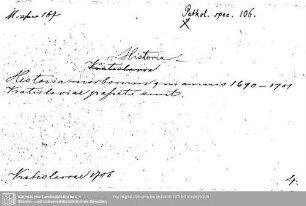 Pathol. spec. 106.
Historia
Historia morborum, qui annis 1690-1701
Vratislaviae grassati sunt.
Vratislaviae 1706
4.
Sächsische Landesbibliothek -
Staats- und Universitätsbibliothek Dresden